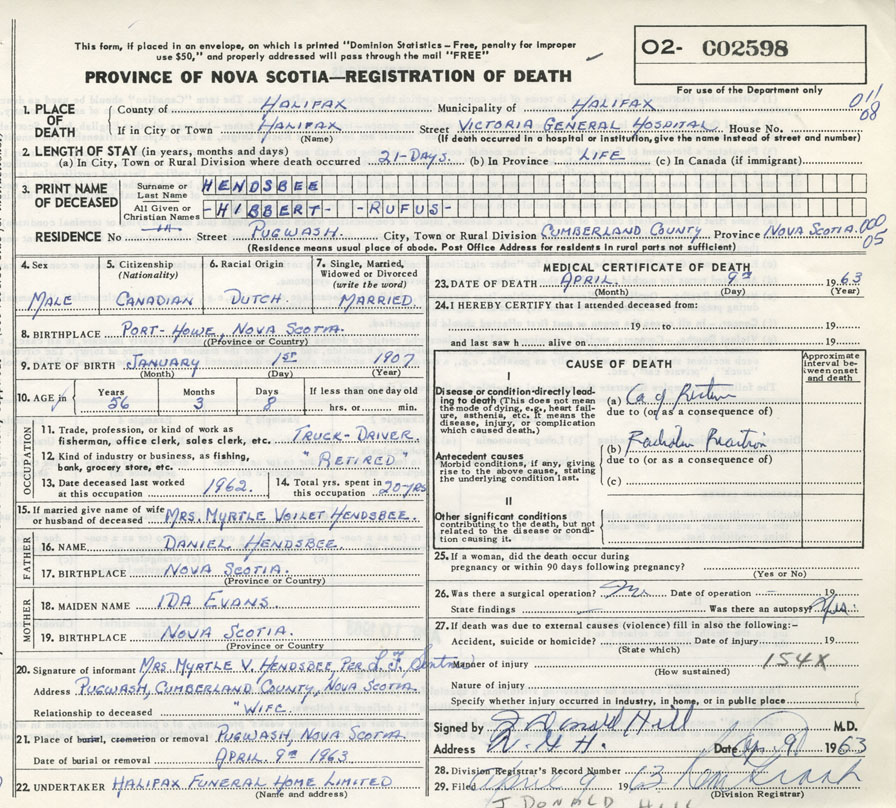 This form, if placed in an envelope, on which is printed "Dominion Statistics – Free, penalty for improper
use $50," and properly addressed will pass through the mail "FREE"
O2- C02598
For use of the Department only
PROVINCE OF NOVA SCOTIA—REGISTRATION OF DEATH
011
08
1. PLACE OF DEATH
County of HALIFAX Municipality of HALIFAX
If in City or Town HALIFAX Street VICTORIA GENERAL HOSPITAL House No.
(Name) (If death occurred in a hospital or institution, give the name instead of street and number)
2. LENGTH OF STAY (in years, months and days)
(a) In City, Town or Rural Division where death occurred 21-DAYS. (b) In Province LIFE (c) In Canada (if immigrant)
3. PRINT NAME OF DECEASED
Surname or Last Name HENDSBEE
All Given or Christian Names -HIBBERT- -RUFUS-
RESIDENCE No Street PUGWASH. City, Town or Rural Division CUMBERLAND COUNTY Province NOVA SCOTIA.
000
05
(Residence means usual place of abode. Post Office Address for residents in rural parts not sufficient)
4. Sex
MALE
5. Citizenship (Nationality)
CANADIAN
6. Racial Origin
DUTCH.
7. Single, Married, Widowed or Divorced (write the word)
MARRIED
8. BIRTHPLACE PORT-HOWE, NOVA SCOTIA.
(Province or Country)
9. DATE OF BIRTH JANUARY 1ST 1907
(Month) (Day) (Year)
10. AGE in
Years Months Days If less than one day old
56 3 8 hrs. or min.
OCCUPATION
11. Trade, profession, or kind of work as
fisherman, office clerk, sales clerk, etc. TRUCK-DRIVER.
12. Kind of industry or business, as fishing,
bank, grocery store, etc. "RETIRED"
13. Date deceased last worked
at this occupation 1962.
14. Total yrs. spent in
this occupation 20-YRS
15. If married give name of wife
or husband of deceased MRS. MYRTLE VOILET HENDSBEE.
FATHER
16. NAME DANIEL HENDSBEE.
17. BIRTHPLACE NOVA SCOTIA.
(Province or Country)
MOTHER
18. MAIDEN NAME IDA EVANS.
19. BIRTHPLACE NOVA SCOTIA.
(Province or Country)
20. Signature of informant MRS. MYRTLE V. HENDSBEE, PER
Address PUGWASH, CUMBERLAND COUNTY, NOVA SCOTIA.
Relationship to deceased "WIFE."
21. Place of burial, cremation or removal PUGWASH, NOVA SCOTIA
Date of burial or removal APRIL 9TH 1963.
22. UNDERTAKER HALIFAX FUNERAL HOME LIMITED
(Name and address)
MEDICAL CERTIFICATE OF DEATH
23. DATE OF DEATH APRIL 9TH 1963
(Month) (Day) (Year)
24. I HEREBY CERTIFY that I attended deceased from:
19 to 19
and last saw h alive on 19
CAUSE OF DEATH
Approximate interval between onset and death
I
Disease or condition directly leading to death (This does not mean the mode of dying, e.g., heart failure, asthenia, etc. It means the disease, injury, or complication which caused death.)
(a) Ca. of Rectum
due to (or as a consequence of)
Antecedent causes
Morbid conditions, if any, giving rise to the above cause, stating the underlying condition last.
(b) Radiation Reaction
due to (or as a consequence of)
(c)
II
Other significant conditions
contributing to the death, but not related to the disease or condition causing it.
25. If a woman, did the death occur during
pregnancy or within 90 days following pregnancy?
(Yes or No)
26. Was there a surgical operation? Date of operation 19
State findings Was there an autopsy?
27. If death was due to external causes (violence) fill in also the following:–
Accident, suicide or homicide? Date of injury 19
(State which)
Manner of injury 154X
(How sustained)
Nature of injury
Specify whether injury occurred in industry, in home, or in public place
Signed by J. Donald Hill M.D.
Address V. G. H. Date Ap. 9 1963
28. Division Registrar's Record Number
29. Filed April 9 1963
(Division Registrar)
J DONALD HILL